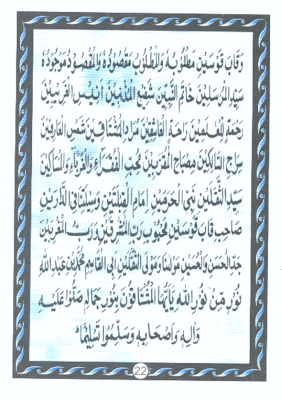 وَقَابَ قَوْسَيْنِ مَطْلُوْبُهٗ وَالْمَطْلُوْبُ مَقْصُوْدُهٗ وَالْمَقْصُوْدُ مَوْجُوْدُهٗ
سَيِّدِ الْمُرْسَلِيْنَ خَاتِمِ النَّبِيّٖنَ شَفِيْعِ الْمُذْنِبِيْنَ اَنِيْسِ الْغَرِيْبِيْنَ
رَحْمَةٍ لِّلْعٰلَمِيْنَ رَاحَةِ الْعَاشِقِيْنَ مُرَادِ الْمُشْتَاقِيْنَ شَمْسِ الْعَارِفِيْنَ
سِرَاجِ السَّالِكِيْنَ مِصْبَاحِ الْمُقَرَّبِيْنَ مُحِبِّ الْفُقَرَآءِ وَالْغُرَبَآءِ وَالْمَسَاكِيْنِ
سَيِّدِ الثَّقَلَيْنِ نَبِيِّ الْحَرَمَيْنِ اِمَامِ الْقِبْلَتَيْنِ وَسِيْلَتِنَا فِي الدَّارَيْنِ
صَاحِبِ قَابَ قَوْسَيْنِ مَحْبُوْبِ رَبِّ الْمَشْرِقَيْنِ وَرَبِّ الْمَغْرِبَيْنِ
جَدِّ الْحَسَنِ وَالْحُسَيْنِ مَوْلٰىنَا وَمَوْلَى الثَّقَلَيْنِ اَبِي الْقَاسِمِ مُحَمَّدِ بْنِ عَبْدِ اللّٰهِ
نُوْرٍ مِّنْ نُوْرِ اللّٰهِ يٰٓاَيُّهَا الْمُشْتَاقُوْنَ بِنُوْرِ جَمَالِهٖ صَلُّوْا عَلَيْهِ
وَاٰلِهٖ وَاَصْحَابِهٖ وَسَلِّمُوْا تَسْلِيْمًا
22